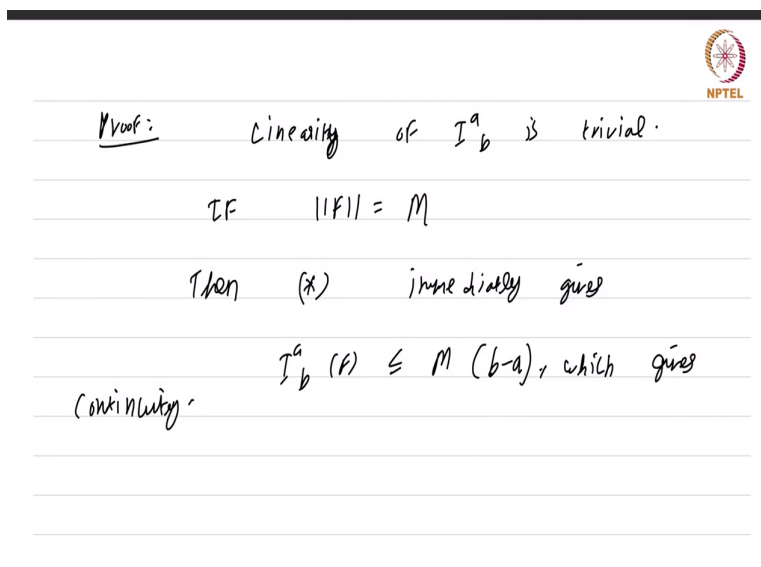 NPTEL
Proof: Linearity of I^a_b is trivial.
If ||F|| = M
Then (*) immediately gives
I^a_b (F) ≤ M (b-a), which gives
continuity.